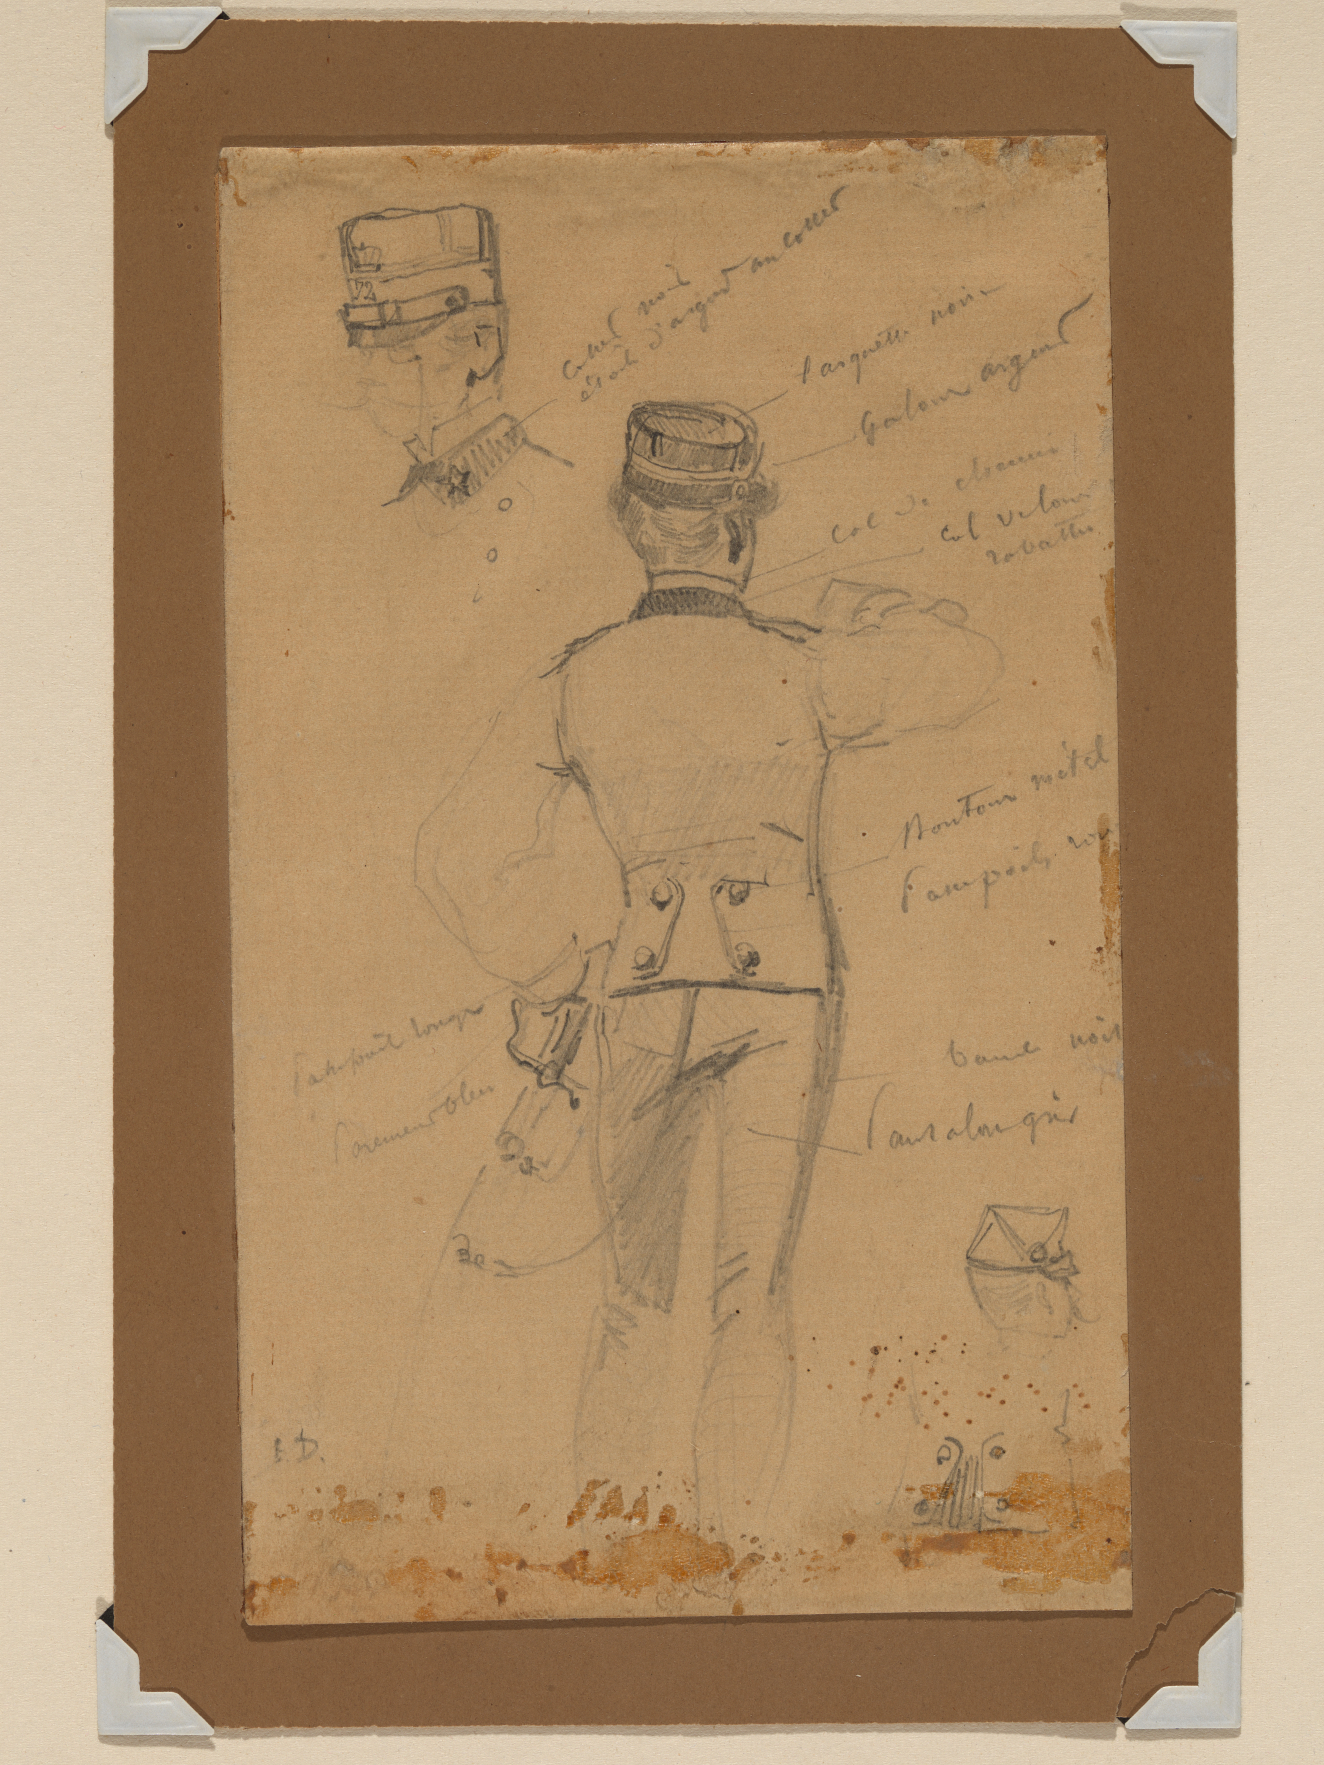 72
collet noir
étoile d'argent au collet
Casquette noire
Galons argent
Col de chemise
Col velours
rabattu
Boutons métal
Passepoils rou
Passepoil rouge
Parement bleu
bande noir
Pantalon gris
E.D.